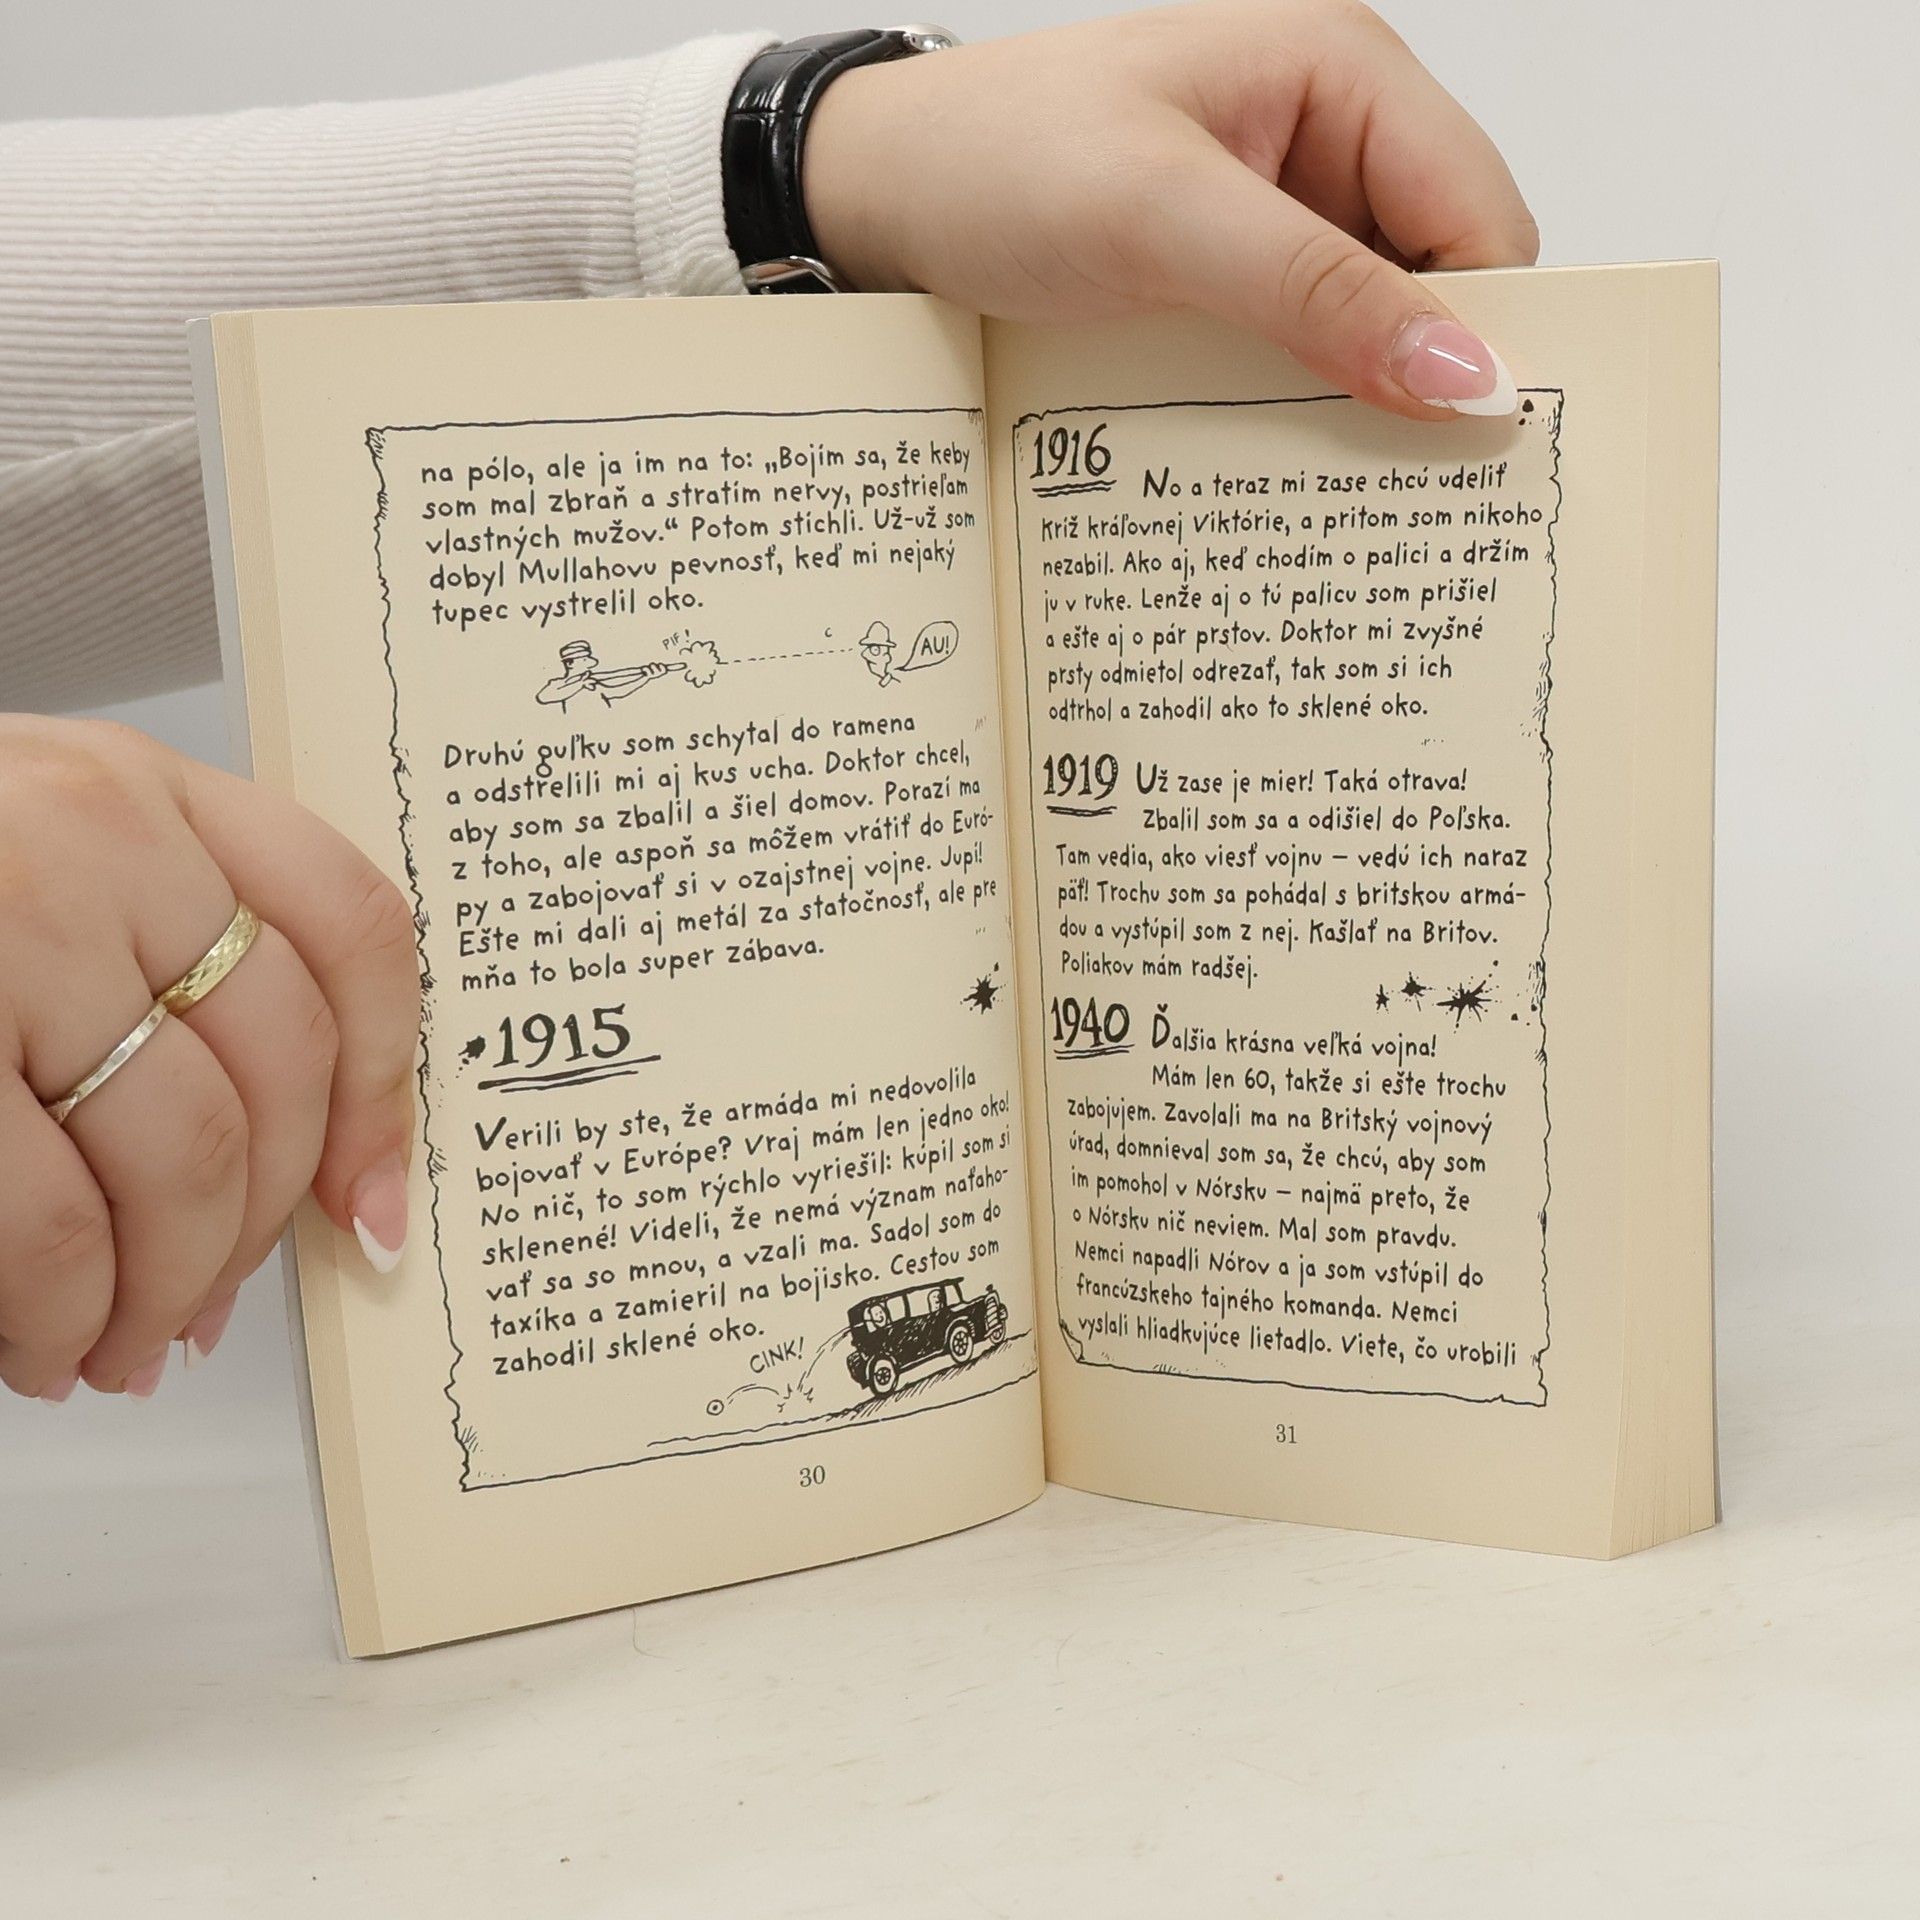 na pólo, ale ja im na to: „Bojím sa, že keby
som mal zbraň a stratím nervy, postrieľam
vlastných mužov.“ Potom stíchli. Už-už som
dobyl Mullahovu pevnosť, keď mi nejaký
tupec vystrelil oko.
PIF!
AU!
Druhú guľku som schytal do ramena
a odstrelili mi aj kus ucha. Doktor chcel,
aby som sa zbalil a šiel domov. Porazí ma
z toho, ale aspoň sa môžem vrátiť do Euró-
py a zabojovať si v ozajstnej vojne. Jupí!
Ešte mi dali aj metál za statočnosť, ale pre
mňa to bola super zábava.
1915
Verili by ste, že armáda mi nedovolila
bojovať v Európe? Vraj mám len jedno oko!
No nič, to som rýchlo vyriešil: kúpil som si
sklenené! Videli, že nemá význam naťaho-
vať sa so mnou, a vzali ma. Sadol som do
taxíka a zamieril na bojisko. Cestou som
zahodil sklené oko.
CINK!
30
1916
No a teraz mi zase chcú udeliť
Kríž kráľovnej Viktórie, a pritom som nikoho
nezabil. Ako aj, keď chodím o palici a držím
ju v ruke. Lenže aj o tú palicu som prišiel
a ešte aj o pár prstov. Doktor mi zvyšné
prsty odmietol odrezať, tak som si ich
odtrhol a zahodil ako to sklené oko.
1919 Už zase je mier! Taká otrava!
Zbalil som sa a odišiel do Poľska.
Tam vedia, ako viesť vojnu – vedú ich naraz
päť! Trochu som sa pohádal s britskou armá-
dou a vystúpil som z nej. Kašlať na Britov.
Poliakov mám radšej.
1940 Ďalšia krásna veľká vojna!
Mám len 60, takže si ešte trochu
zabojujem. Zavolali ma na Britský vojnový
úrad, domnieval som sa, že chcú, aby som
im pomohol v Nórsku – najmä preto, že
o Nórsku nič neviem. Mal som pravdu.
Nemci napadli Nórov a ja som vstúpil do
francúzskeho tajného komanda. Nemci
vyslali hliadkujúce lietadlo. Viete, čo urobili
31